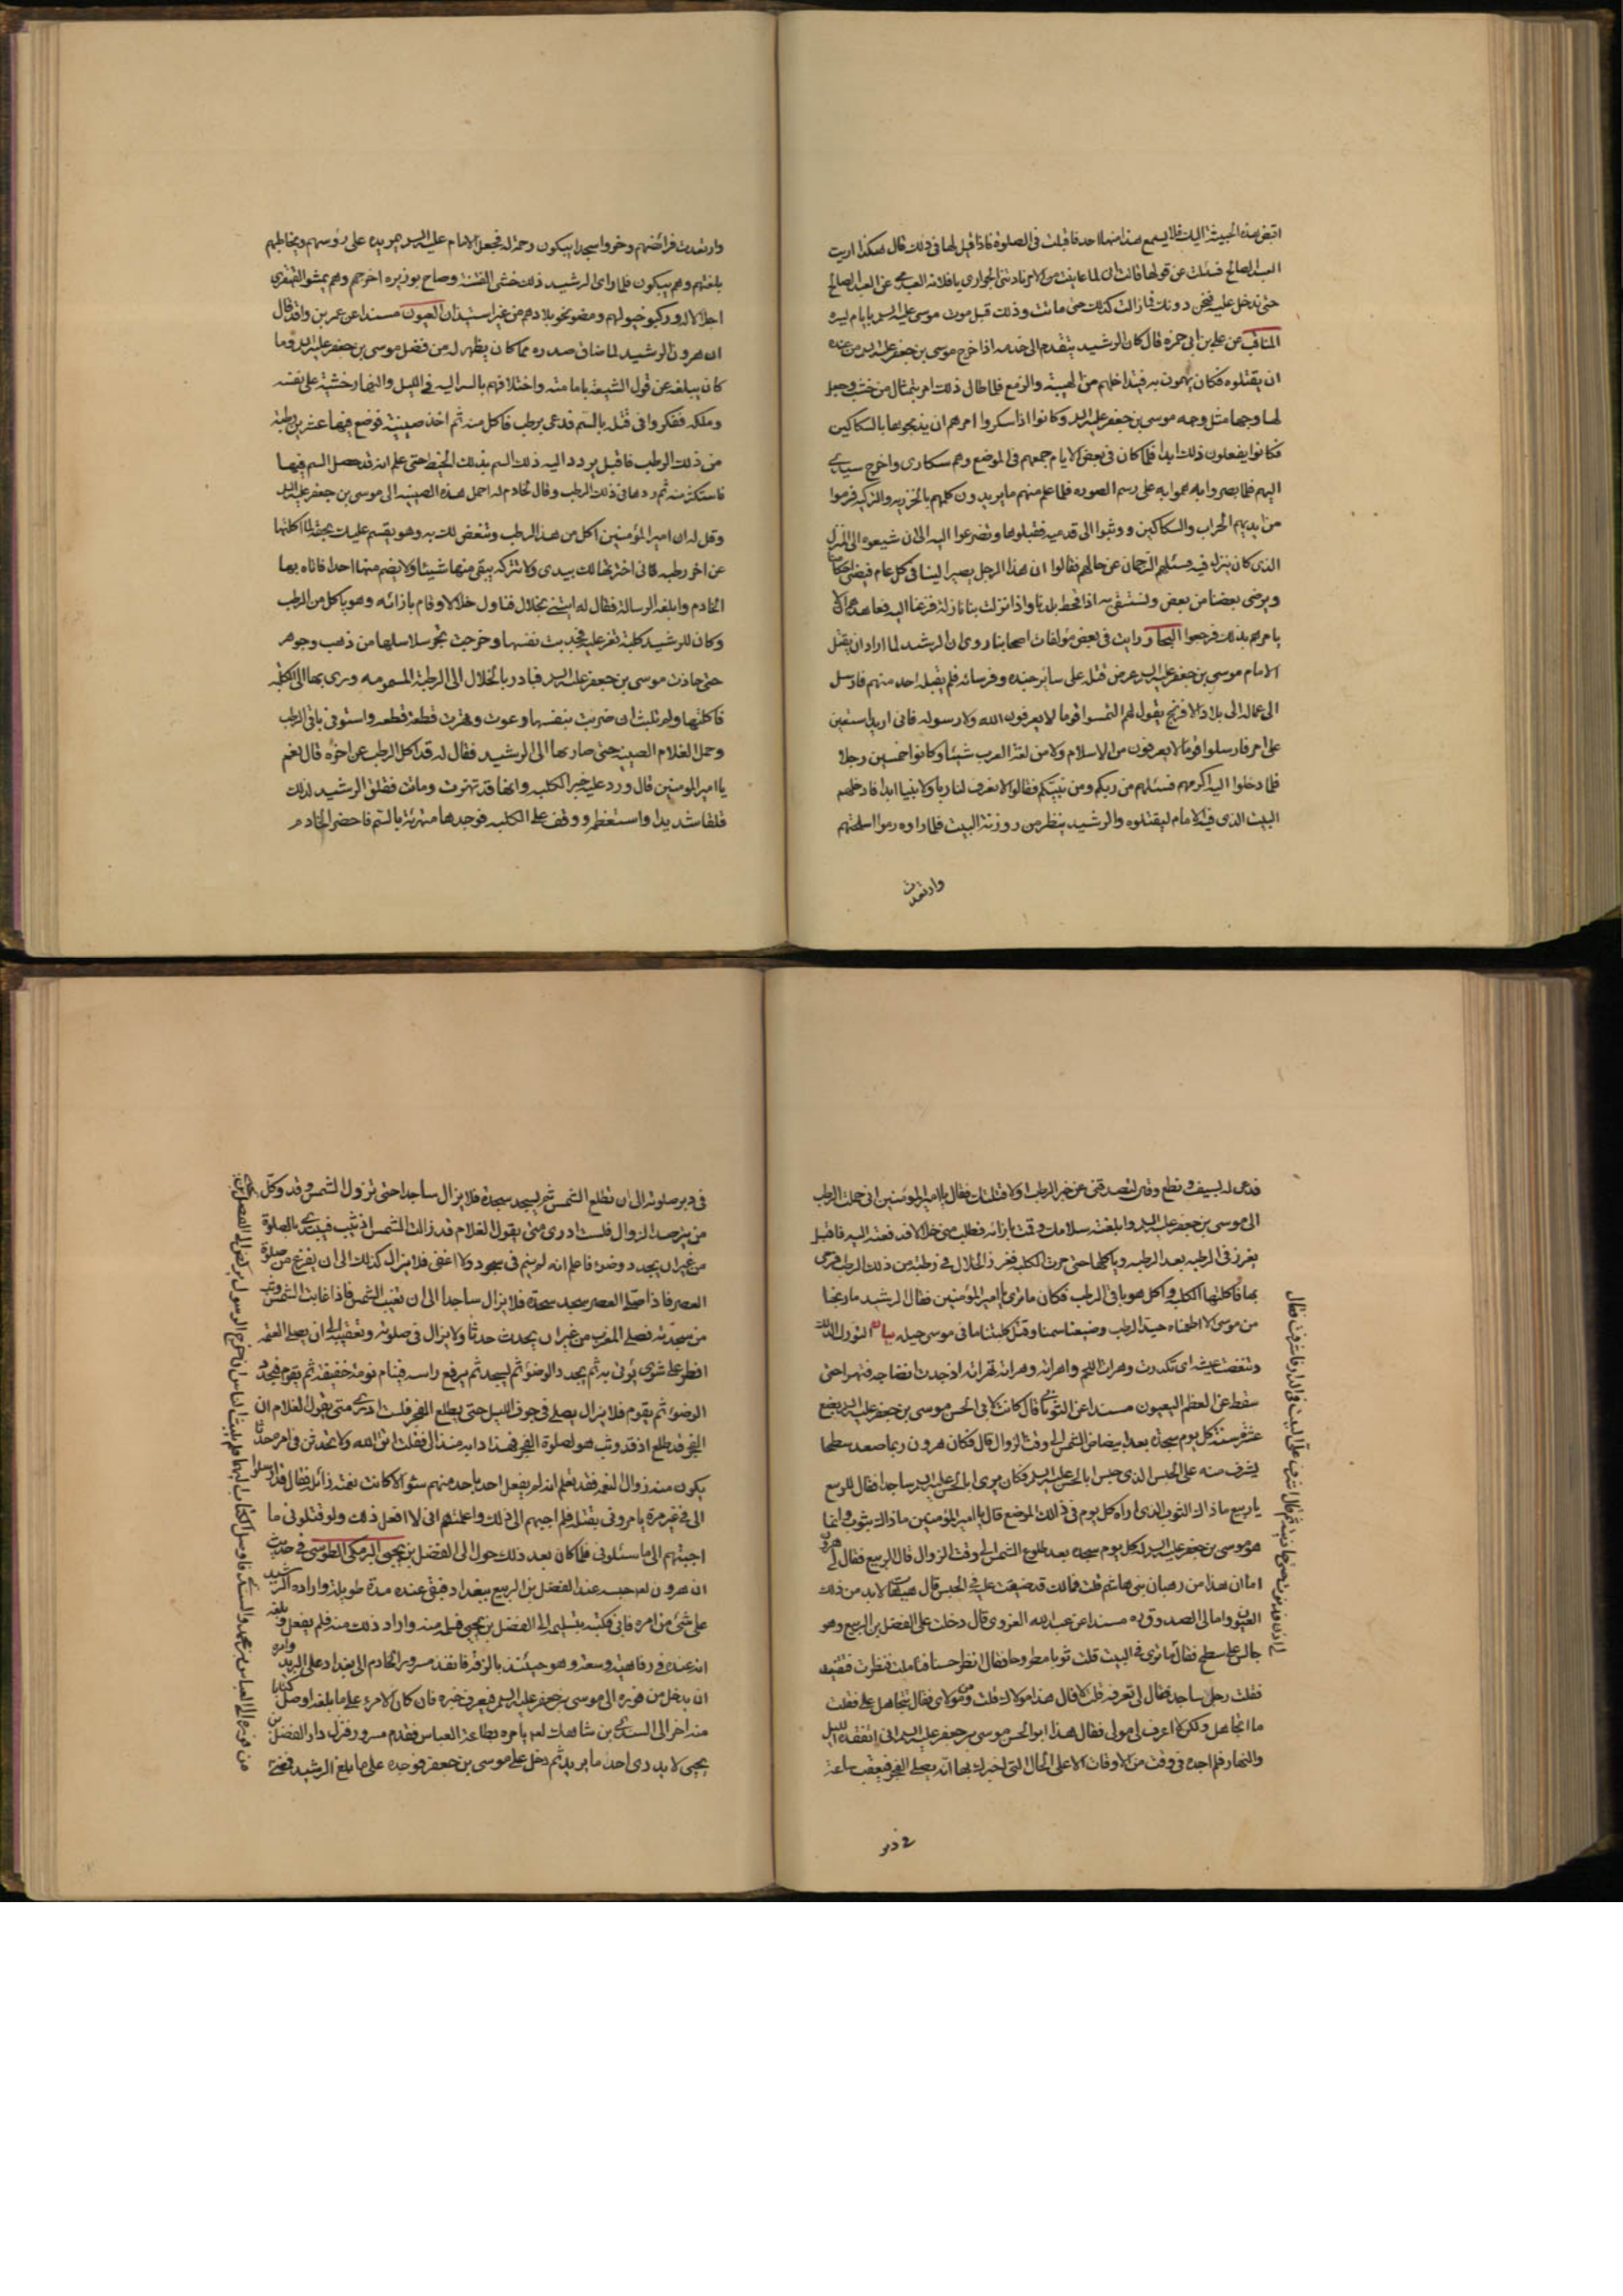 اقبض هذه الخبيثة اليك فلا يسمع هذا منها احد فاقبلت في الصلوة فاذا قيل لها في ذلك قال هكذا رايت
العبد الصالح فسئلت عن قولها قالت اني لما عاينت من الامر نادتني الجواري يا فلانة ابعدي عن العبد الصالح
حتى ندخل عليه فنحن دونك فما زالت كذلك حتى ماتت وذلك قبل موت موسى عليه السلم بايام يسيره
المناقب عن علي بن ابي حمزه قال كان الرشيد يتقدم الى خدمه اذا خرج موسى بن جعفر عليه السلم من عنده
ان يقتلوه فكان يهمون به فيتداخلهم من الهيبة والزمع فلما طال ذلك امر بتمثال من خشب وجعل
لها وجها مثل وجه موسى بن جعفر عليه السلم وكانوا اذا سكروا امرهم ان يذبحوها بالسكاكين
فكانوا يفعلون ذلك ابدا فلما كان في بعض الايام جمعهم في الموضع وهم سكارى واخرج سيدي
اليهم فلما بصروا به هموا به على رسم الصوره فلما علم منهم ما يريدون كلمهم بالخزريه والتركيه فرموا
من ايديهم الحراب والسكاكين ووثبوا الى قدميه فقبلوها وتضرعوا اليه الى ان شيعوه الى المنزل
الذي كان ينزل فيه فسئلهم الترجمان عن حالهم فقالوا ان هذا الرجل يصير الينا في كل عام فيقضي احكامنا
ويرضى بعضنا من بعض ونستسقي به اذا قحط بلدنا واذا نزلت بنا نازلة فزعنا اليه فعاهدهم انه لا
يامرهم بذلك فرجعوا البحار رايت في بعض مؤلفات اصحابنا روي ان الرشيد لما اراد ان يقتل
الامام موسى بن جعفر عليه السلم عرض قتله على ساير جنده وفرسانه فلم يقبله احد منهم فارسل
الى عماله الى بلاد الافرنج يقول لهم التمسوا قوما لا يعرفون الله ولا رسوله فاني اريد استعين
على امر فارسلوا قوما لا يعرفون من الاسلام ولا من لغة العرب شيئا وكانوا خمسين رجلا
فلما دخلوا اليه اكرمهم فسئلهم من ربكم ومن نبيكم فقالوا لا نعرف لنا ربا ولا نبيا ابدا فادخلهم
البيت الذي فيه الامام ليقتلوه والرشيد ينظر من روزنة البيت فلما راوه رموا اسلحتهم
وارتعدت
وارتعدت فرائصهم وخروا سجدا يبكون رحمة له فجعل الامام عليه السلم يمر يده على رؤسهم ويخاطبهم
بلغتهم وهم يبكون فلما راى الرشيد ذلك خشى الفتنة وصاح بوزيره اخرجهم وهم يمشوا القهقرى
اجلالا له وركبو خيولهم ومضو نحو بلادهم من غير استيذان العيون مسندا عن عمر بن واقد قال
ان هرون الرشيد لما ضاق صدره مما كان يظهر له من فضل موسى بن جعفر عليه السلم وما
كان يبلغه عن قول الشيعة بامامته واختلافهم بالسر اليه في الليل والنهار خشية على نفسه
وملكه ففكروا في قتله بالسم فدعى برطب فاكل منه ثم اخذ صينية فوضع فيها عشرين رطبة
من ذلك الرطب فاقبل يردد اليه ذلك السم بذلك الخيط حتى علم انه قد حصل السم فيها
فاستكثر منه ثم ردها في ذلك الرطب وقال لخادم له احمل هذه الصينيه الى موسى بن جعفر عليه السلم
وقل له ان امير المؤمنين اكل من هذا الرطب وتنغص لك به وهو يقسم عليك بحقه لما اكلتها
عن اخر رطبه فاني اخترتها لك بيدي ولا تتركه يبقي منها شيئا ولا يطعم منها احدا فاتاه بها
الخادم وابلغه الرسالة فقال له ايتني بخلال فناوله خلالا وقام بازائه وهو ياكل من الرطب
وكان للرشيد كلبة تعز عليه فجذبت نفسها وخرجت تجر سلاسلها من ذهب وجوهر
حتى حاذت موسى بن جعفر عليه السلم فبادر بالخلال الى الرطبة المسمومه ورمى بها الى الكلبة
فاكلتها ولم تلبث ان ضربت بنفسها وعوت وهترت قطعة قطعه واستوفى باقي الرطب
وحمل الغلام الصينيه حتى صار بها الى الرشيد فقال له قد اكل الرطب عن اخره قال نعم
يا امير المؤمنين قال ورد عليه خبر الكلبه وانها قد تهرت وماتت فقلق الرشيد لذلك
قلقا شديدا واستعظم ووقف على الكلبه فوجدها متهرئة بالسم فاحضر الخادم
فدعى له بسيف ونطع وقال لتصدقني عن خبر الرطب ولاقتلنك فقال يا امير المؤمنين اني حملت الرطب
الى موسى بن جعفر عليه السلم وابلغته سلامك وقمت بازائه فطلب مني خلالا فدفعته اليه فاقبل
يغرز في الرطبه بعد الرطبه وياكلها حتى مرت الكلبه فغرز الخلال في رطبة من ذلك الرطب فرمى
بها فاكلتها الكلبه واكل هو باقي الرطب فكان ما ترى يا امير المؤمنين فقال الرشيد ما ربحنا
من موسى الا اطعمناه جيد الرطب وضيعنا سمنا وقتل كلبتنا ما في موسى حيله بيان
وتنغصت عيشه اي تكدرت وهرات اللحم واهراته وهراته تهرائة اذ جدت انضاجه فتهرا حتى
سقط عن العظم العيون مسندا عن الثوباني قال كانت لابي الحسن موسى بن جعفر عليه السلم بضع
عشرة سنة كل يوم سجدة بعد ابيضاض الشمس الى وقت الزوال قال فكان هرون ربما صعد سطحا
يشرف منه على الحبس الذي حبس ابا الحسن عليه السلم فكان يرى ابا الحسن عليه السلم ساجدا فقال للربيع
يا ربيع ما ذاك الثوب الذي اراه كل يوم في ذلك الموضع قال يا امير المؤمنين ما ذاك بثوب وانما
هو موسى بن جعفر عليه السلم له كل يوم سجدة بعد طلوع الشمس الى وقت الزوال قال الربيع فقال لي هرون
اما ان هذا من رهبان بني هاشم قلت فما لك قد ضيقت عليه في الحبس قال هيهات لا بد من ذلك
العيون وامالي الصدوق ره مسندا عن عبد الله القروي قال دخلت على الفضل بن الربيع وهو
جالس على سطح فقال ما ترى في البيت قلت ثوبا مطروحا فقال انظر حسنا فتاملت فنظرت فتيقنت
فقلت رجل ساجد فقال لي تعرفه قلت لا قال هذا مولاك قلت ومن مولاي فقال تتجاهل علي فقلت
ما اتجاهل ولكن لا اعرف لي مولى فقال هذا ابو الحسن موسى بن جعفر عليه السلم اني اتفقده الليل
والنهار فلم اجده في وقت من الاوقات الا على الحال التي اخبرك بها انه يصلي الفجر فيعقب ساعة
في دبر
في دبر صلوته الى ان تطلع الشمس ثم يسجد سجدة فلا يزال ساجدا حتى تزول الشمس وقد وكل
من يترصد الزوال فلست ادري متى يقول الغلام قد زالت الشمس اذ يثب فيبتدي بالصلوة
من غير ان يجدد وضوء فاعلم انه لم ينم في سجوده ولا اغفى فلا يزال كذلك الى ان يفرغ من صلوة
العصر فاذا صلى العصر سجد سجدة فلا يزال ساجدا الى ان تغيب الشمس فاذا غابت الشمس وثب
من سجدته فصلى المغرب من غير ان يحدث حدثا ولا يزال في صلوته وتعقيبه الى ان يصلي العتمه
افطر على شوي يؤتى به ثم يجدد الوضوء ثم يسجد ثم يرفع راسه فينام نومة خفيفة ثم يقوم فيجدد
الوضوء ثم يقوم فلا يزال يصلي في جوف الليل حتى يطلع الفجر فلست ادري متى يقول الغلام ان
الفجر قد طلع اذ قد وثب هو لصلوة الفجر فهذا دابه منذ الى فقلت اتق الله ولا تحدثن في امره حدثا
يكون منه زوال النعمه فقد تعلم انه لم يفعل احد باحد منهم سوءا الا كانت نعمته زائله فقال قد ارسلوا
الى في غير مرة يامروني بقتله فلم اجبهم الى ذلك واعلمتهم اني لا افعل ذلك ولو قتلوني ما
اجبتهم الى ما سئلوني فلما كان بعد ذلك حول الى الفضل بن يحيى البرمكي الطوسي في حديث
ان هرون لما حبسه عند الفضل بن الربيع ببغداد فبقي عنده مدة طويلة واراده الرشيد
على شيء من امره فابى فكتب بتسليمه الى الفضل بن يحيى فتسلمه منه واراد ذلك منه فلم يفعل وبلغه
انه عنده في رفاهية وسعة وهو حينئذ بالرقه فانفذ مسرور الخادم الى بغداد على البريد وامره
ان يدخل من فوره الى موسى بن جعفر عليه السلم فيعرف خبره فان كان الامر على ما بلغه اوصل كتابا
منه اخر الى السندي بن شاهك يامره بطاعة العباس فقدم مسرور فنزل دار الفضل بن
يحيى لا يدري احد ما يريد ثم دخل على موسى بن جعفر فوجده على ما بلغ الرشيد فمضى